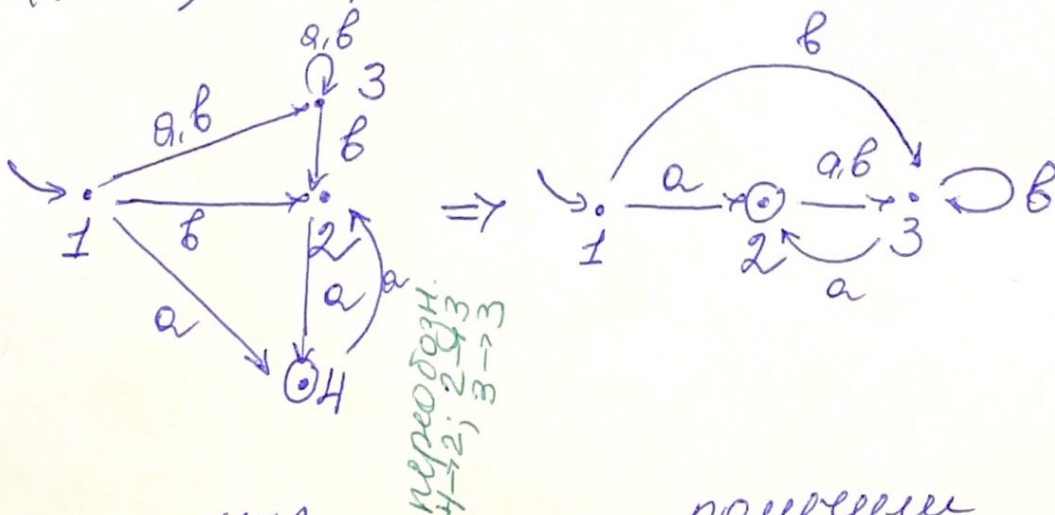 a,b
3
a,b
b
1
b
2
a
a
a
4
=>
переобозн.
4→2; 2→3
3→3
b
1
a
2
a,b
3
b
a